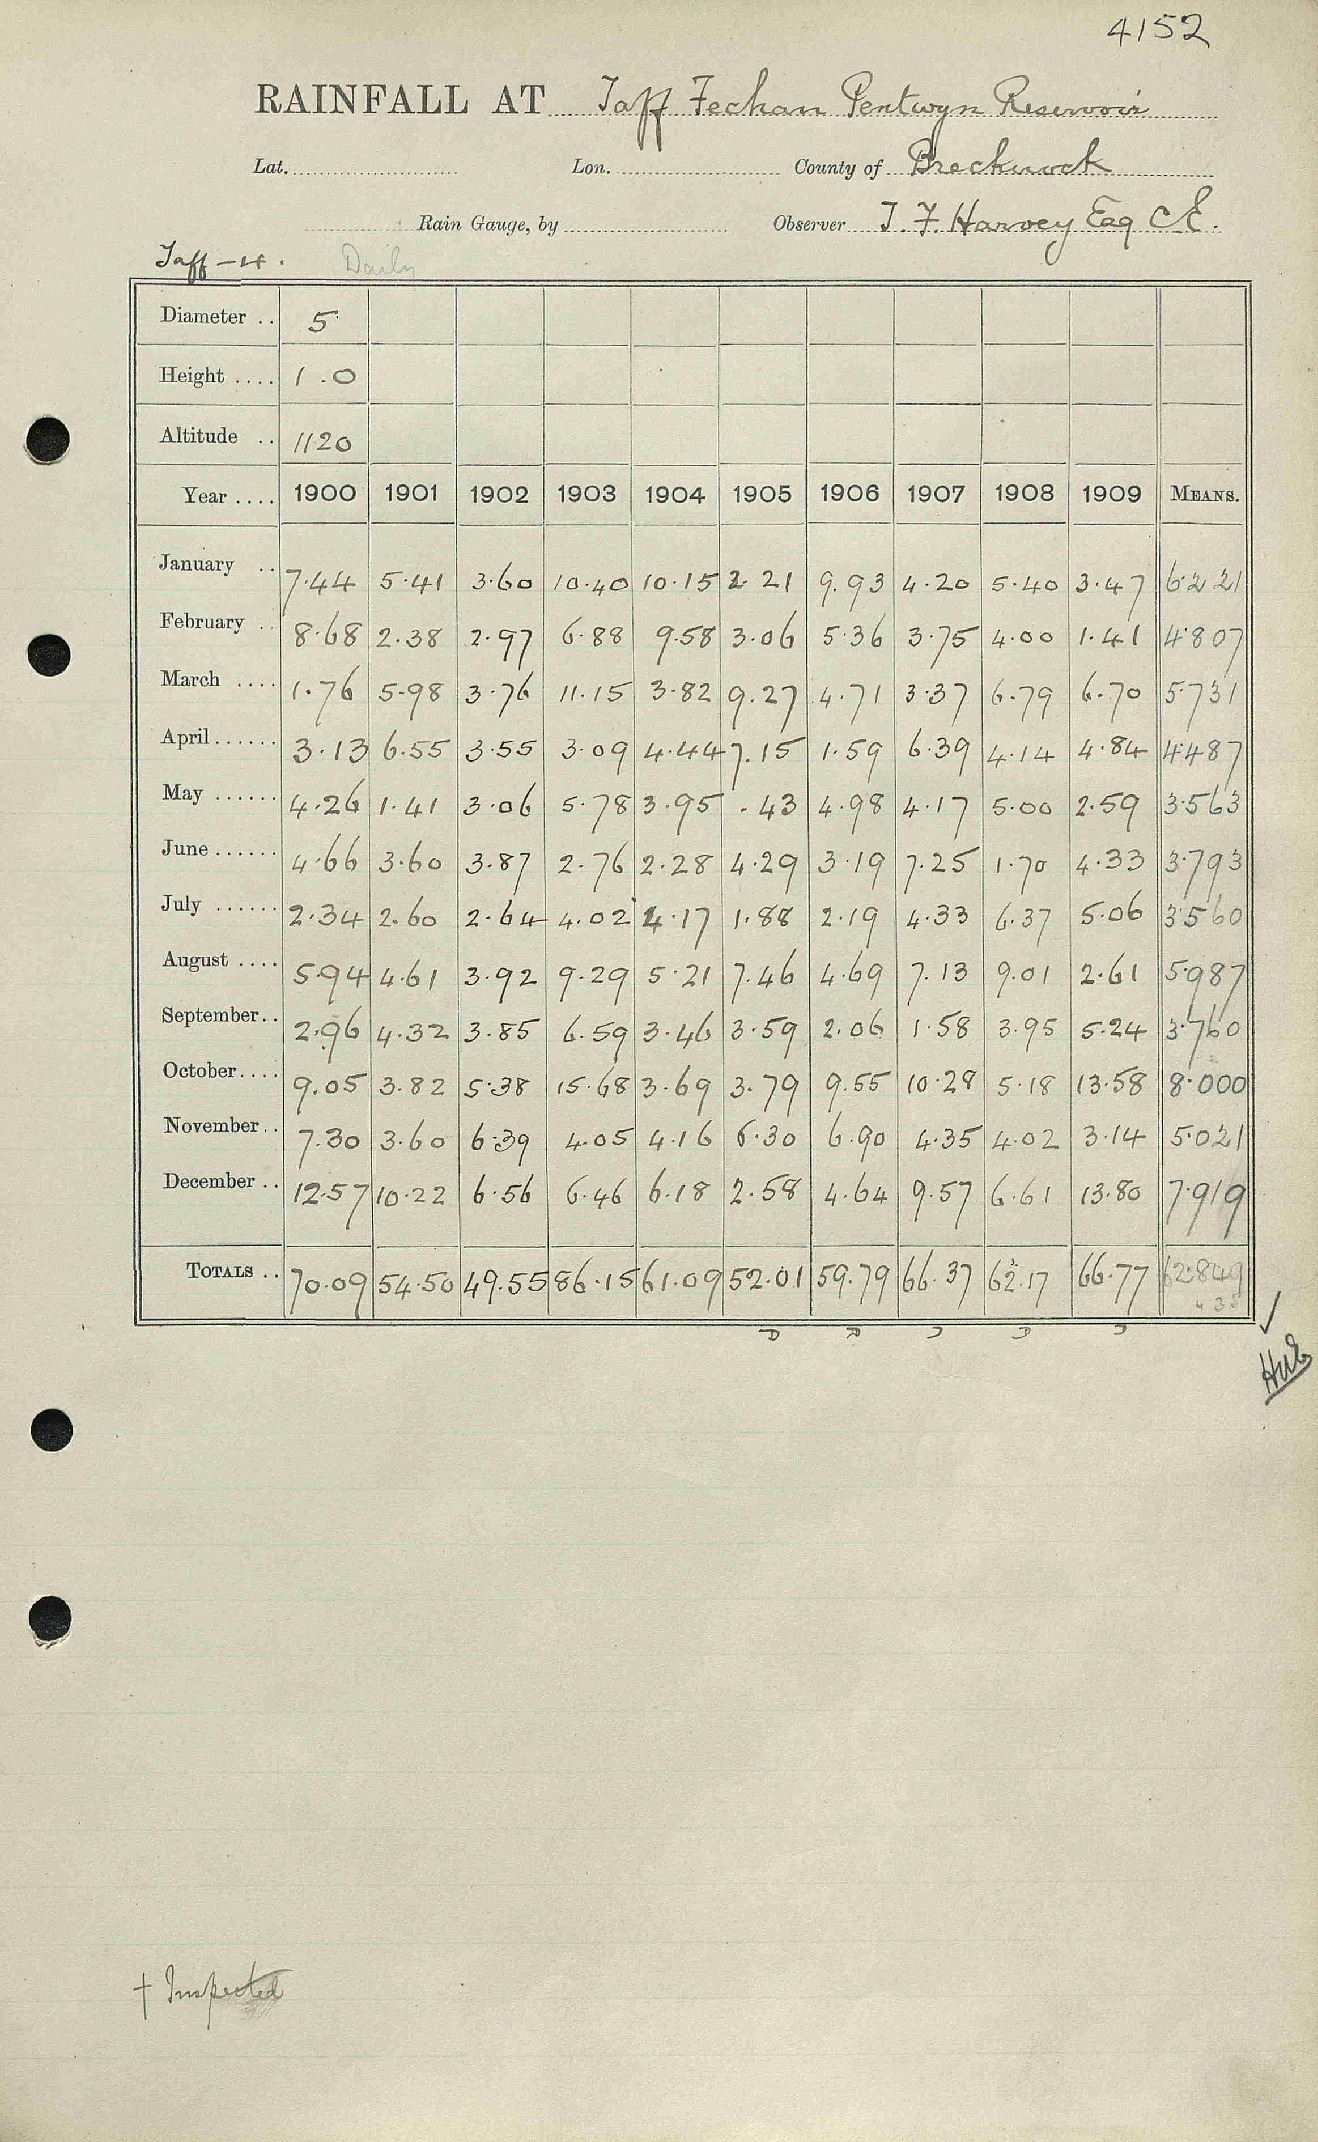 4152
RAINFALL AT Taff Fechan Pentwyn Reservoir
Lat. Lon. County of Brecknock
Rain Gauge, by Observer T. F. Harvey Esq C.E.
Taff - 4. Daily
Diameter .. 5
Height .... 1.0
Altitude .. 1120
Year .... 1900 1901 1902 1903 1904 1905 1906 1907 1908 1909 MEANS.
January .. 7.44 5.41 3.60 10.40 10.15 2.21 9.93 4.20 5.40 3.47 6.221
February .. 8.68 2.38 2.97 6.88 9.58 3.06 5.36 3.75 4.00 1.41 4.807
March .... 1.76 5.98 3.76 11.15 3.82 9.27 4.71 3.37 6.79 6.70 5.731
April ...... 3.13 6.55 3.55 3.09 4.44 7.15 1.59 6.39 4.14 4.84 4.487
May ...... 4.26 1.41 3.06 5.78 3.95 .43 4.98 4.17 5.00 2.59 3.563
June ...... 4.66 3.60 3.87 2.76 2.28 4.29 3.19 7.25 1.70 4.33 3.793
July ...... 2.34 2.60 2.64 4.02 4.17 1.88 2.19 4.33 6.37 5.06 3.560
August .... 5.94 4.61 3.92 9.29 5.21 7.46 4.69 7.13 9.01 2.61 5.987
September .. 2.96 4.32 3.85 6.59 3.46 3.59 2.06 1.58 3.95 5.24 3.760
October .... 9.05 3.82 5.38 15.68 3.69 3.79 9.55 10.28 5.18 13.58 8.000
November .. 7.30 3.60 6.39 4.05 4.16 6.30 6.90 4.35 4.02 3.14 5.021
December .. 12.57 10.22 6.56 6.46 6.18 2.58 4.64 9.57 6.61 13.80 7.919
TOTALS .. 70.09 54.50 49.55 86.15 61.09 52.01 59.79 66.37 62.17 66.77 62.849
† Inspected